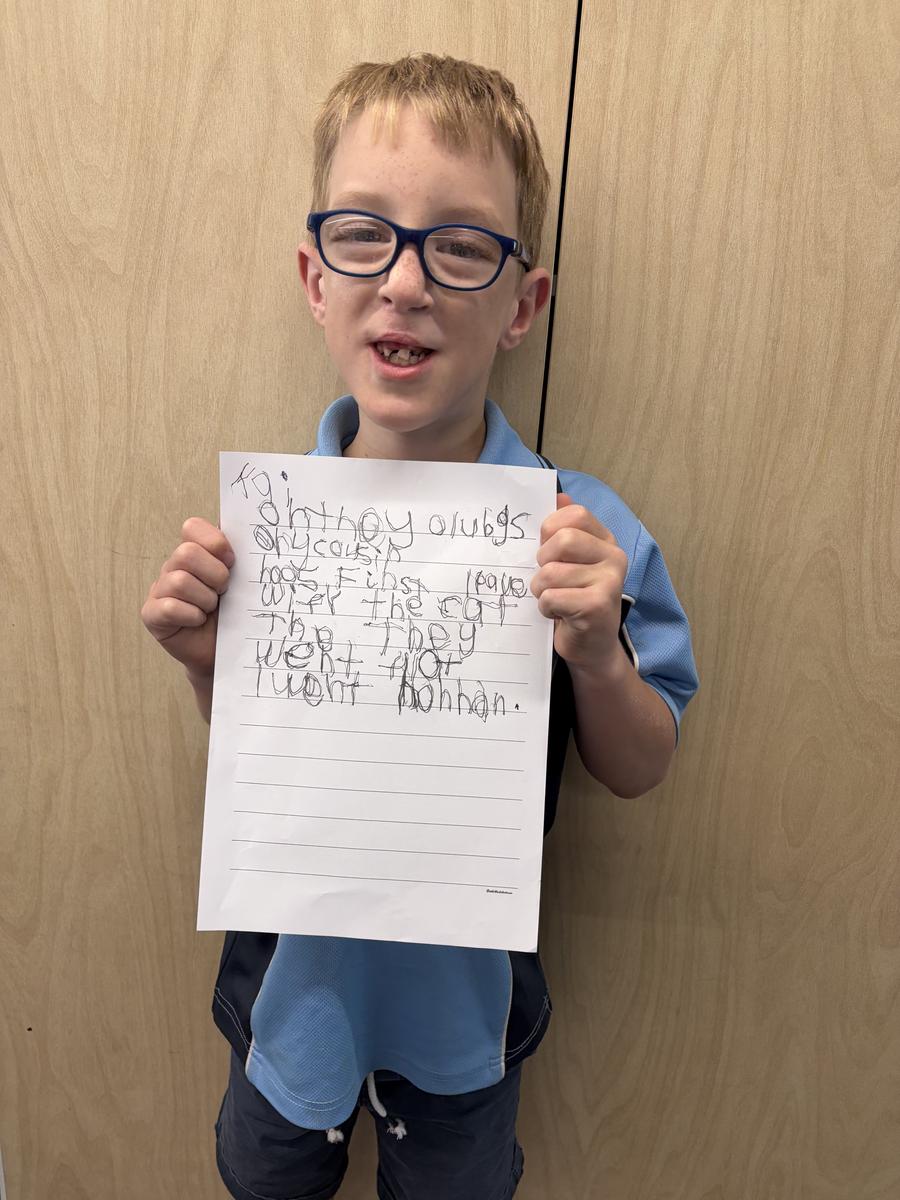 inthey olubgs
ohycousin
hoos Finst leave
with the cat
The They
went hot
I went bohhan.